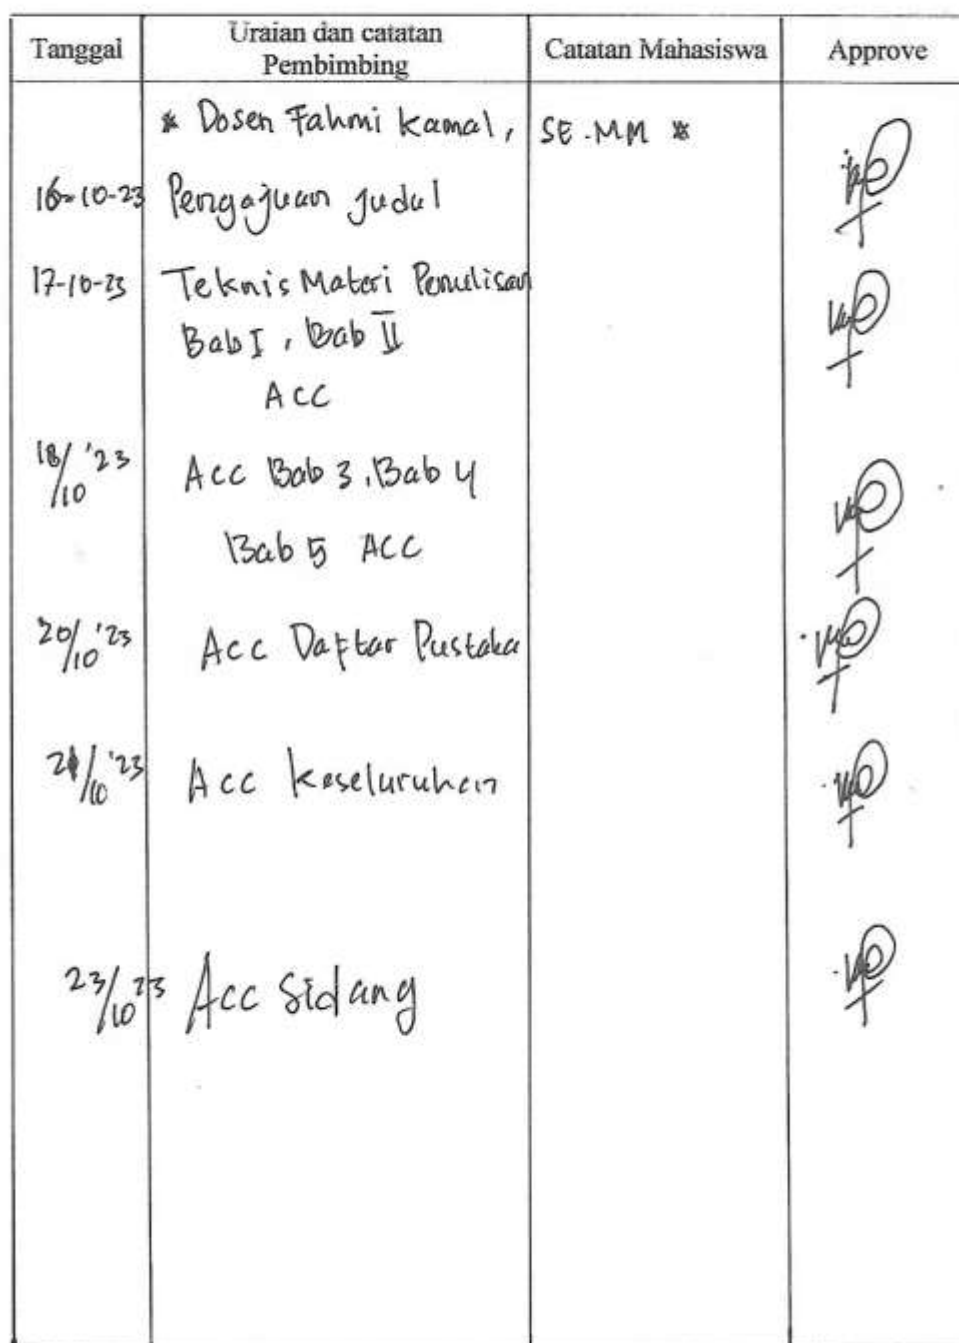 Tanggal
Uraian dan catatan
Pembimbing
Catatan Mahasiswa
Approve
* Dosen Fahmi Kamal, SE.MM *
16-10-23 Pengajuan Judul
17-10-23 Teknis Materi Penulisan
Bab I, Bab II
ACC
18/10 '23 Acc Bab 3, Bab 4
Bab 5 ACC
20/10 '23 Acc Daftar Pustaka
21/10 '23 Acc keseluruhan
23/10 23 Acc Sidang